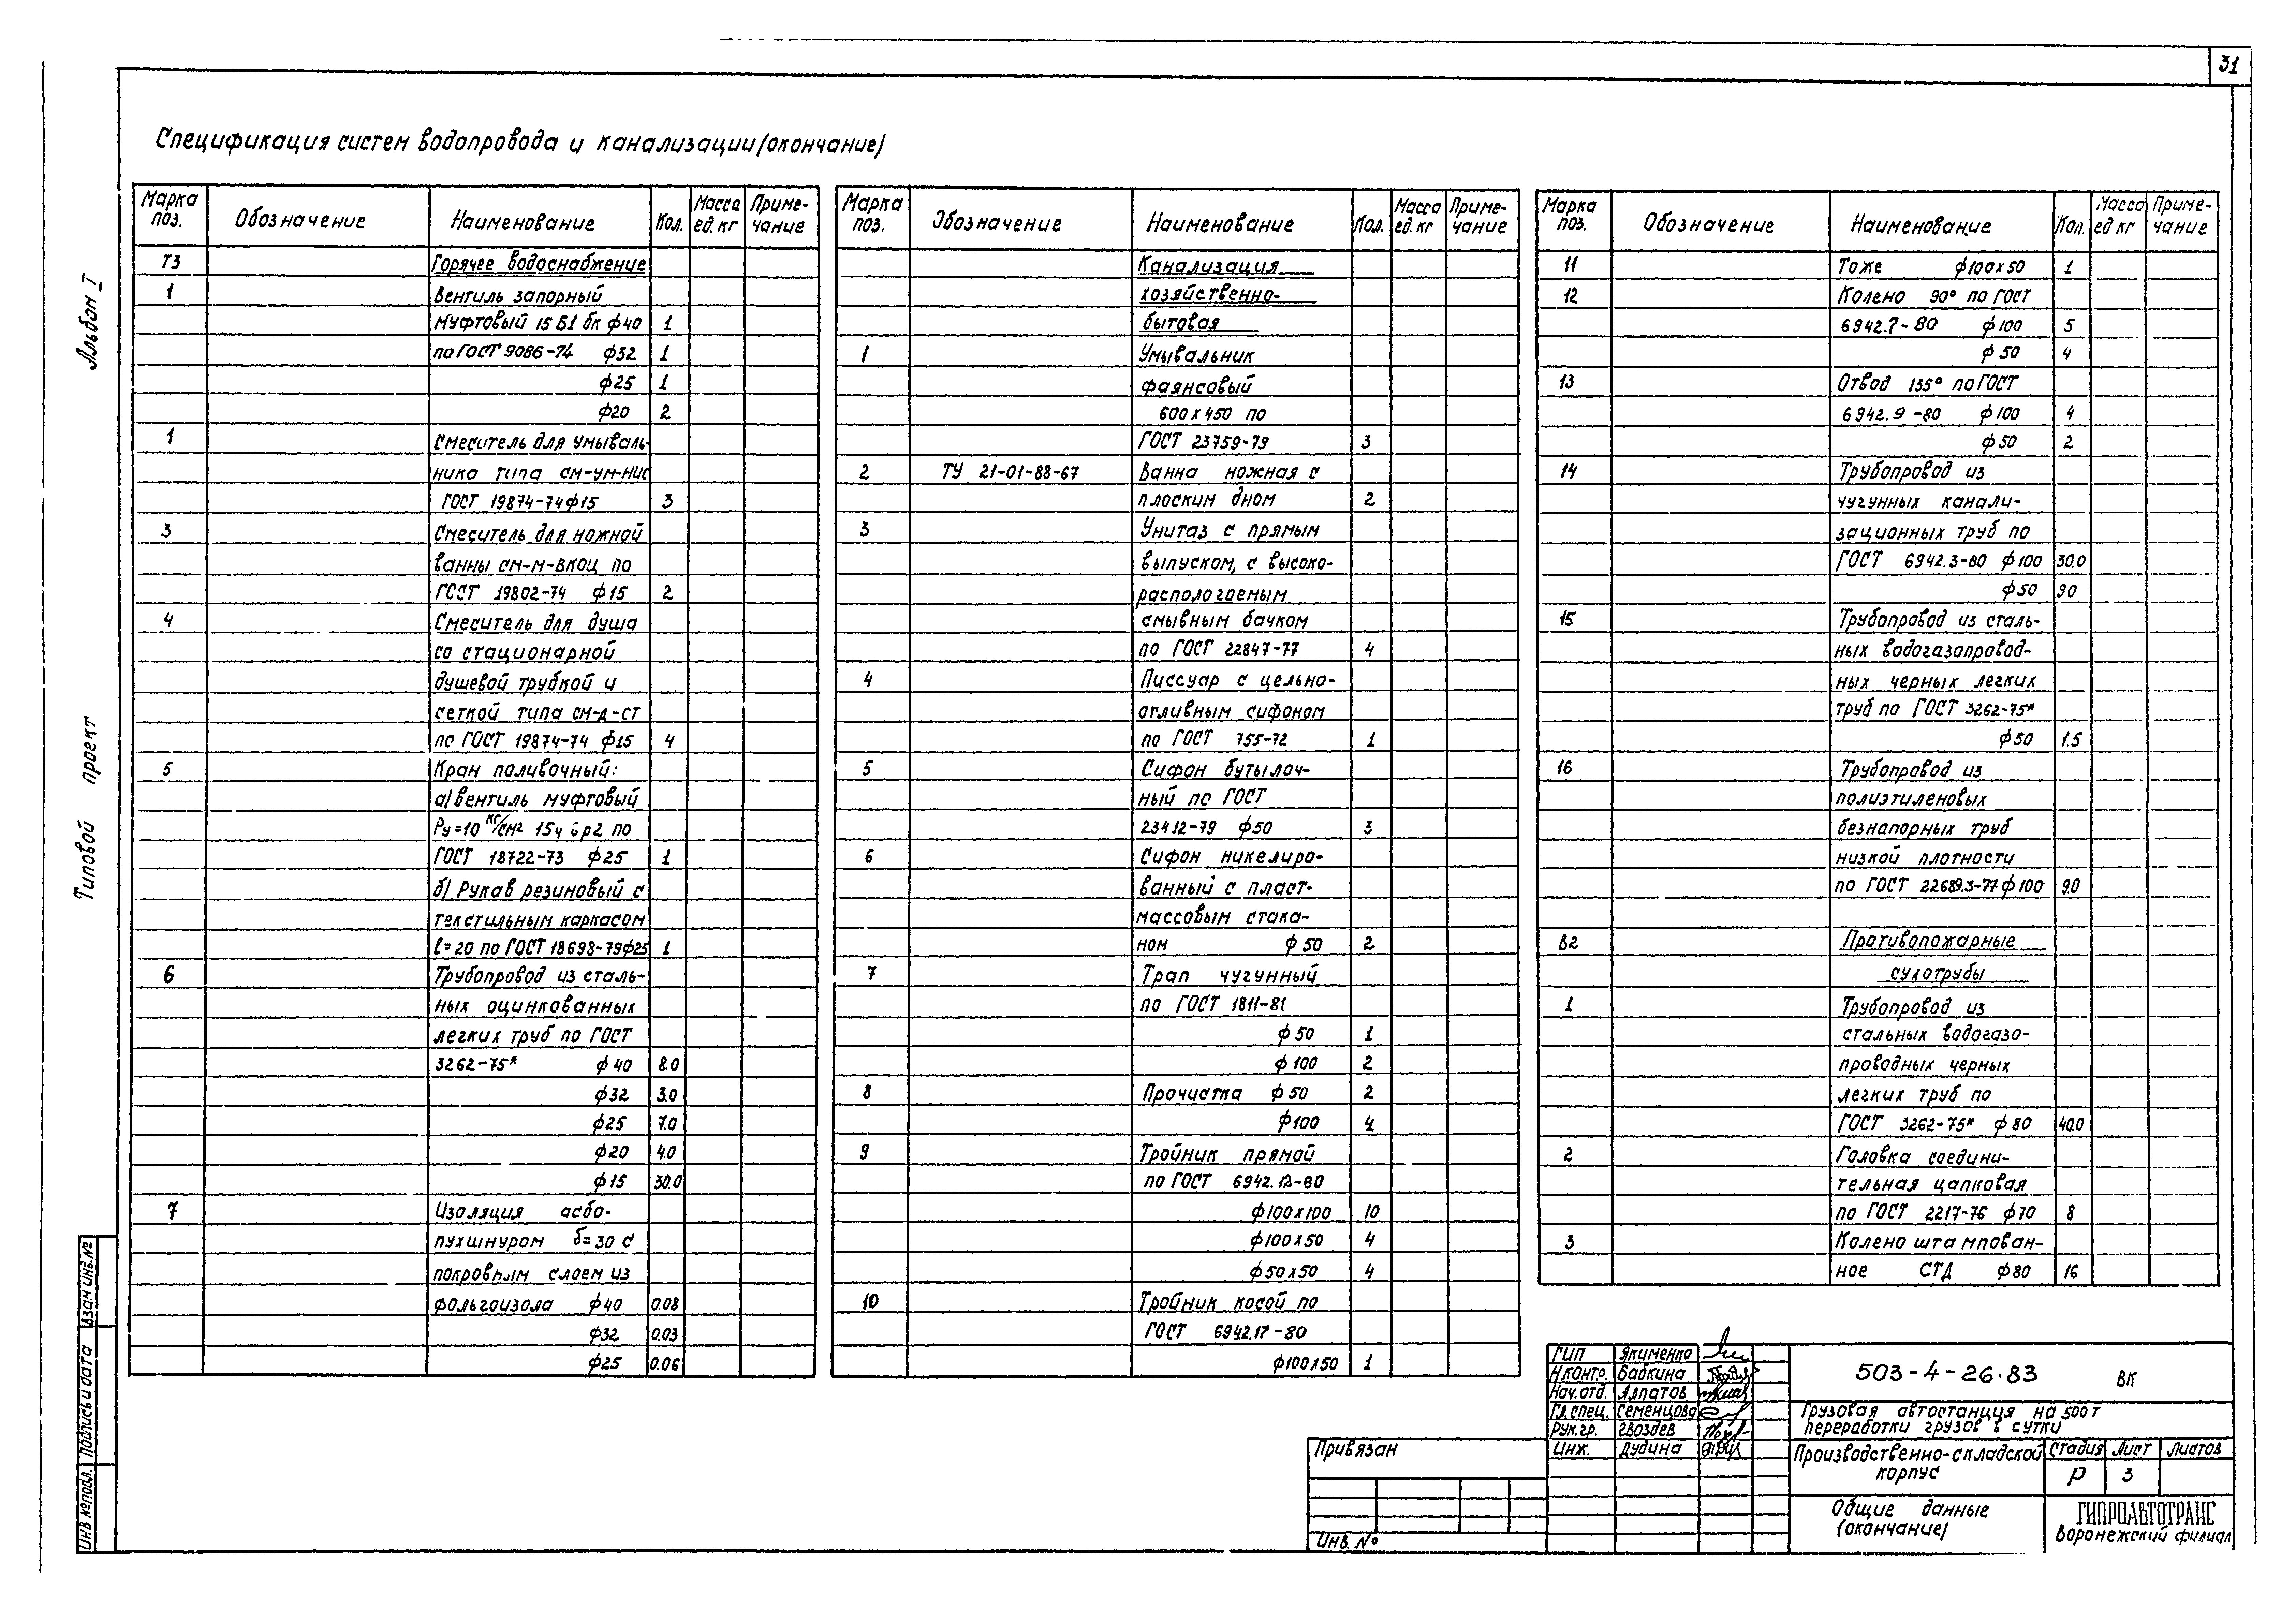 31
Альбом I
Типовой проект
Спецификация систем водопровода и канализации (окончание)
Марка поз. Обозначение Наименование Кол. Масса ед. кг Примечание
Т3 Горячее водоснабжение
1 Вентиль запорный
муфтовый 15 Б1 бк ф40 1
по ГОСТ 9086-74 ф32 1
ф25 1
ф20 2
1 Смеситель для умываль-
ника типа см-ум-нис
ГОСТ 19874-74 ф15 3
3 Смеситель для ножной
ванны см-м-вкоц по
ГОСТ 19802-74 ф15 2
4 Смеситель для душа
со стационарной
душевой трубкой и
сеткой типа см-д-ст
по ГОСТ 19874-74 ф15 4
5 Кран поливочный:
а) вентиль муфтовый
Ру=10 кг/см2 15ч бр2 по
ГОСТ 18722-73 ф25 1
б) Рукав резиновый с
текстильным каркасом
l=20 по ГОСТ 18698-79 ф25 1
6 Трубопровод из сталь-
ных оцинкованных
легких труб по ГОСТ
3262-75* ф40 8.0
ф32 3.0
ф25 7.0
ф20 4.0
ф15 30.0
7 Изоляция асбо-
пухшнуром δ=30 с
покровным слоем из
фольгоизола ф40 0.08
ф32 0.03
ф25 0.06
Марка поз. Обозначение Наименование Кол. Масса ед. кг Примечание
Канализация
хозяйственно-
бытовая
1 Умывальник
фаянсовый
600х450 по
ГОСТ 23759-79 3
2 ТУ 21-01-88-67 Ванна ножная с
плоским дном 2
3 Унитаз с прямым
выпуском, с высоко-
распологаемым
смывным бачком
по ГОСТ 22847-77 4
4 Писсуар с цельно-
отливным сифоном
по ГОСТ 755-72 1
5 Сифон бутылоч-
ный по ГОСТ
23412-79 ф50 3
6 Сифон никелиро-
ванный с пласт-
массовым стака-
ном ф50 2
7 Трап чугунный
по ГОСТ 1811-81
ф50 1
ф100 2
8 Прочистка ф50 2
ф100 4
9 Тройник прямой
по ГОСТ 6942.12-80
ф100х100 10
ф100х50 4
ф50х50 4
10 Тройник косой по
ГОСТ 6942.17-80
ф100х50 1
Марка поз. Обозначение Наименование Кол. Масса ед кг Примечание
11 Тоже ф100х50 1
12 Колено 90° по ГОСТ
6942.7-80 ф100 5
ф50 4
13 Отвод 135° по ГОСТ
6942.9-80 ф100 4
ф50 2
14 Трубопровод из
чугунных канали-
зационных труб по
ГОСТ 6942.3-80 ф100 30.0
ф50 90
15 Трубопровод из сталь-
ных водогазопровод-
ных черных легких
труб по ГОСТ 3262-75*
ф50 1.5
16 Трубопровод из
полиэтиленовых
безнапорных труб
низкой плотности
по ГОСТ 22689.3-77 ф100 9.0
В2 Противопожарные
сухотрубы
1 Трубопровод из
стальных водогазо-
проводных черных
легких труб по
ГОСТ 3262-75* ф80 40.0
2 Головка соедини-
тельная цапковая
по ГОСТ 2217-76 ф70 8
3 Колено штампован-
ное СТД ф80 16
Взам инв. №
Подпись и дата
Инв № подл.
Привязан
Инв. №
ГИП Якименко
Н.контр. Бабкина
Нач.отд. Алпатов
Гл.спец. Семенцова
Рук.гр. Гвоздев
Инж. Дудина
503-4-26.83 ВК
Грузовая автостанция на 500 т
переработки грузов в сутки
Производственно-складской
корпус
Стадия Лист Листов
Р 3
Общие данные
(окончание)
ГИПРОАВТОТРАНС
Воронежский филиал